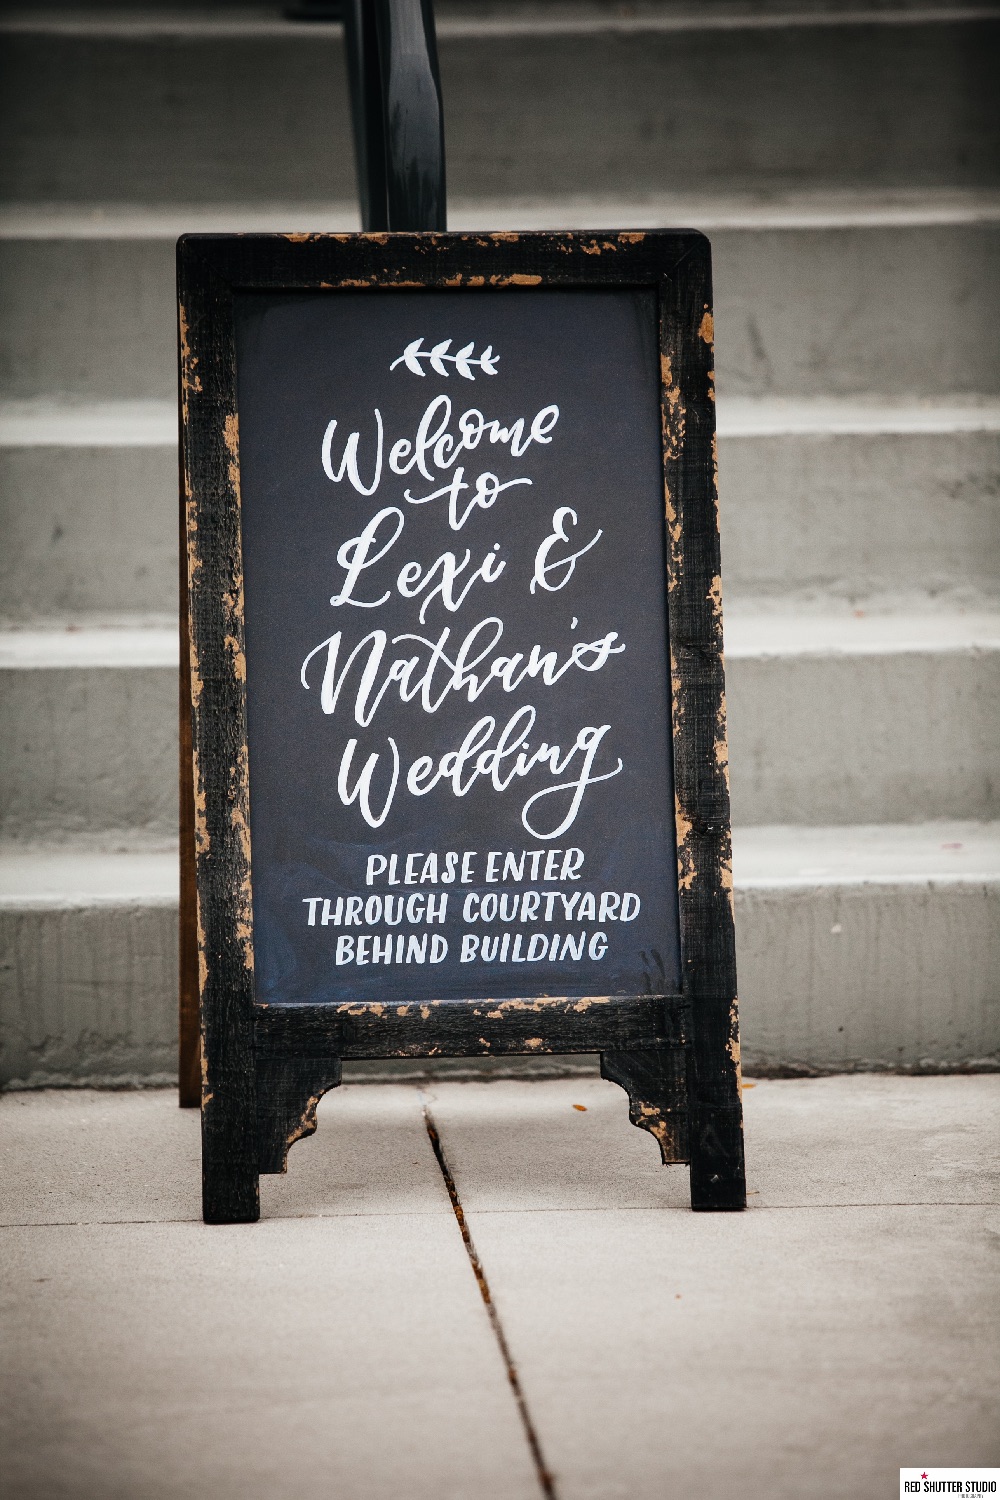 Welcome
to
Lexi &
Nathan's
Wedding
PLEASE ENTER
THROUGH COURTYARD
BEHIND BUILDING
RED SHUTTER STUDIO
PHOTOGRAPHY